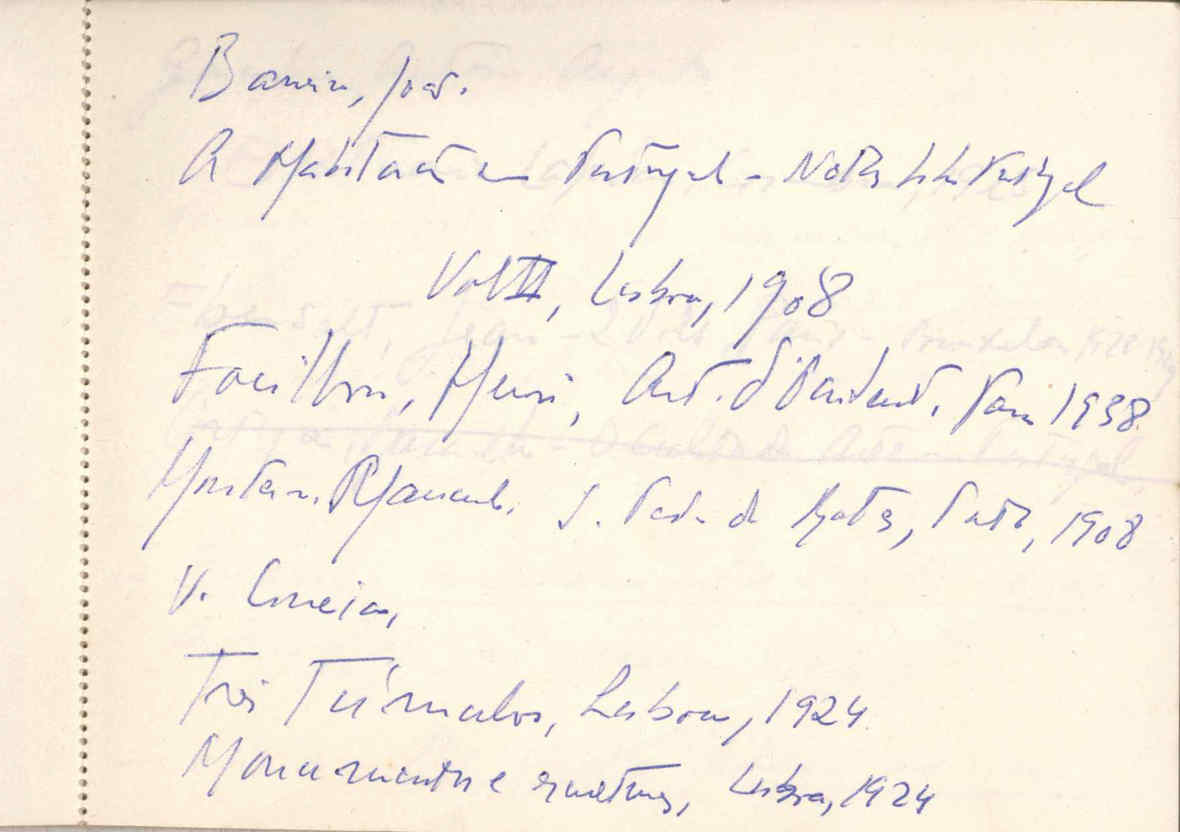 Barreira, João.
A Habitação em Portugal - Notas sobre Portugal
Vol II, Lisboa, 1908
Focillon, Henri, Art. d'Occident. Paris 1938.
Monteiro, Manuel. S. Pedro de Rates, Porto, 1908
V. Correia,
Três Túmulos, Lisboa, 1924
Monumentos e esculturas, Lisboa, 1924